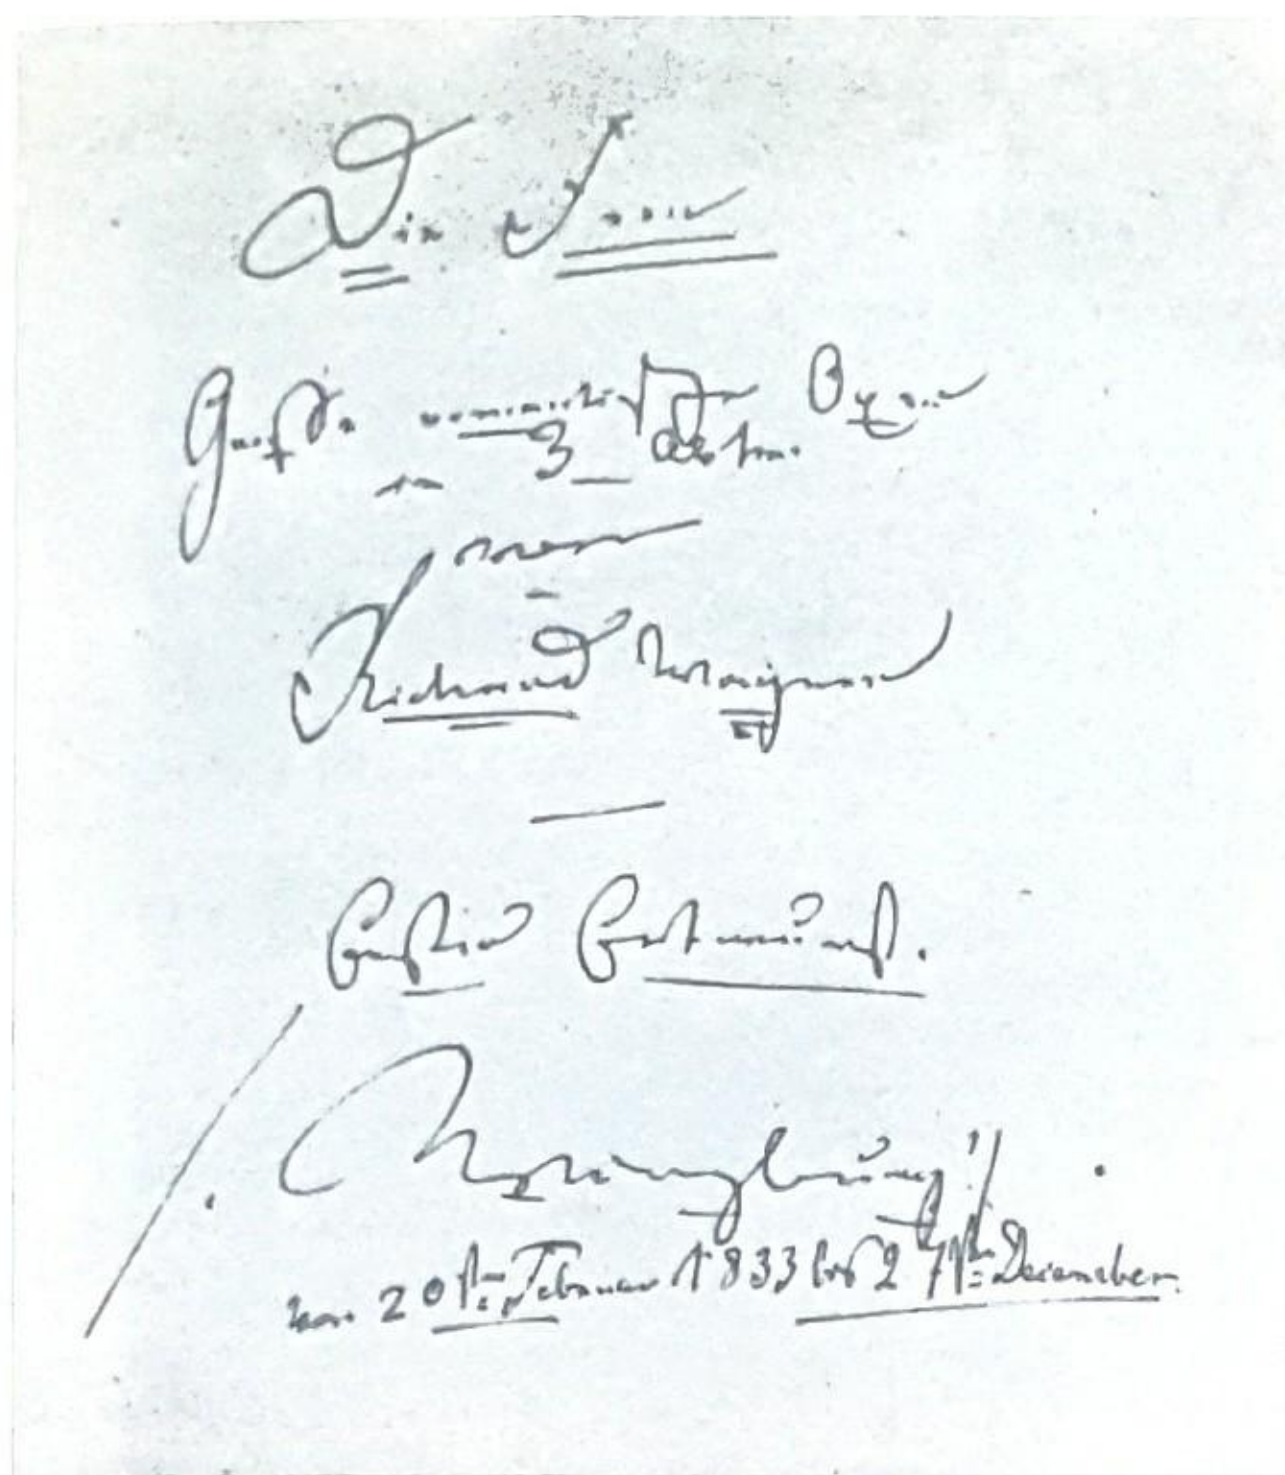 Die Feen
Große romantische Oper
in 3 Akten.
von
Richard Wagner
Erster Entwurf.
von 20sten Februar 1833 bis 27sten December.